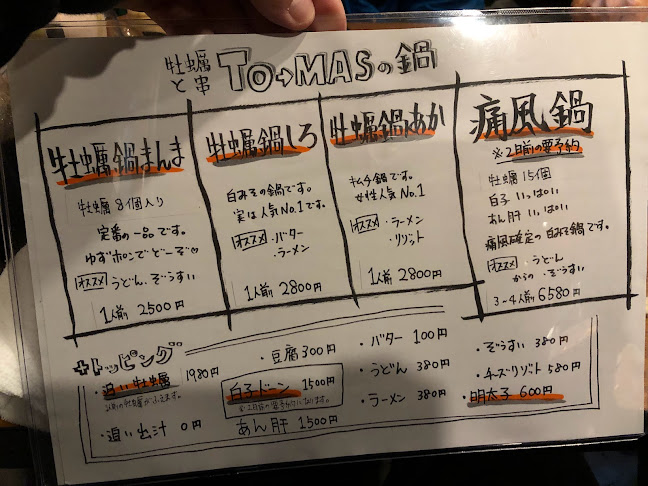 牡蠣と串 TO→MASの鍋
牡蠣鍋まんま
牡蠣8個入り
定番の一品です。
ゆずポンでどーぞ♡
オススメ うどん・ぞうすい
1人前 2500円
牡蠣鍋しろ
白みその鍋です。
実は人気No.1です。
オススメ ・バター
・ラーメン
1人前 2800円
牡蠣鍋あか
キムチ鍋です。
女性人気No.1
オススメ ・ラーメン
・リゾット
1人前 2800円
痛風鍋
※2日前の要予約
牡蠣15個
白子いっぱい
あん肝いっぱい
痛風確定の白みそ鍋です。
オススメ ・うどん
からの・ぞうすい
3~4人前 6580円
+トッピング
・追い牡蠣 1980円
・追い出汁 0円
・豆腐 300円
白子ドーン 1500円
あん肝 1500円
・バター 100円
・うどん 380円
・ラーメン 380円
・ぞうすい 380円
・チーズリゾット 580円
・明太子 600円